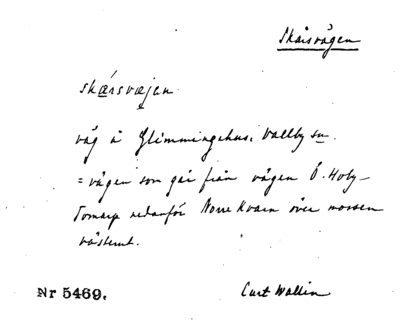 Skärsvägen
skærsvæjen
väg å Glimmingehus, Vallby sn.
= vägen som går från vägen Ö. Hoby-
Tomarp nedanför Norre Kvarn över mossen
västerut.
Nr 5469. Curt Wallin